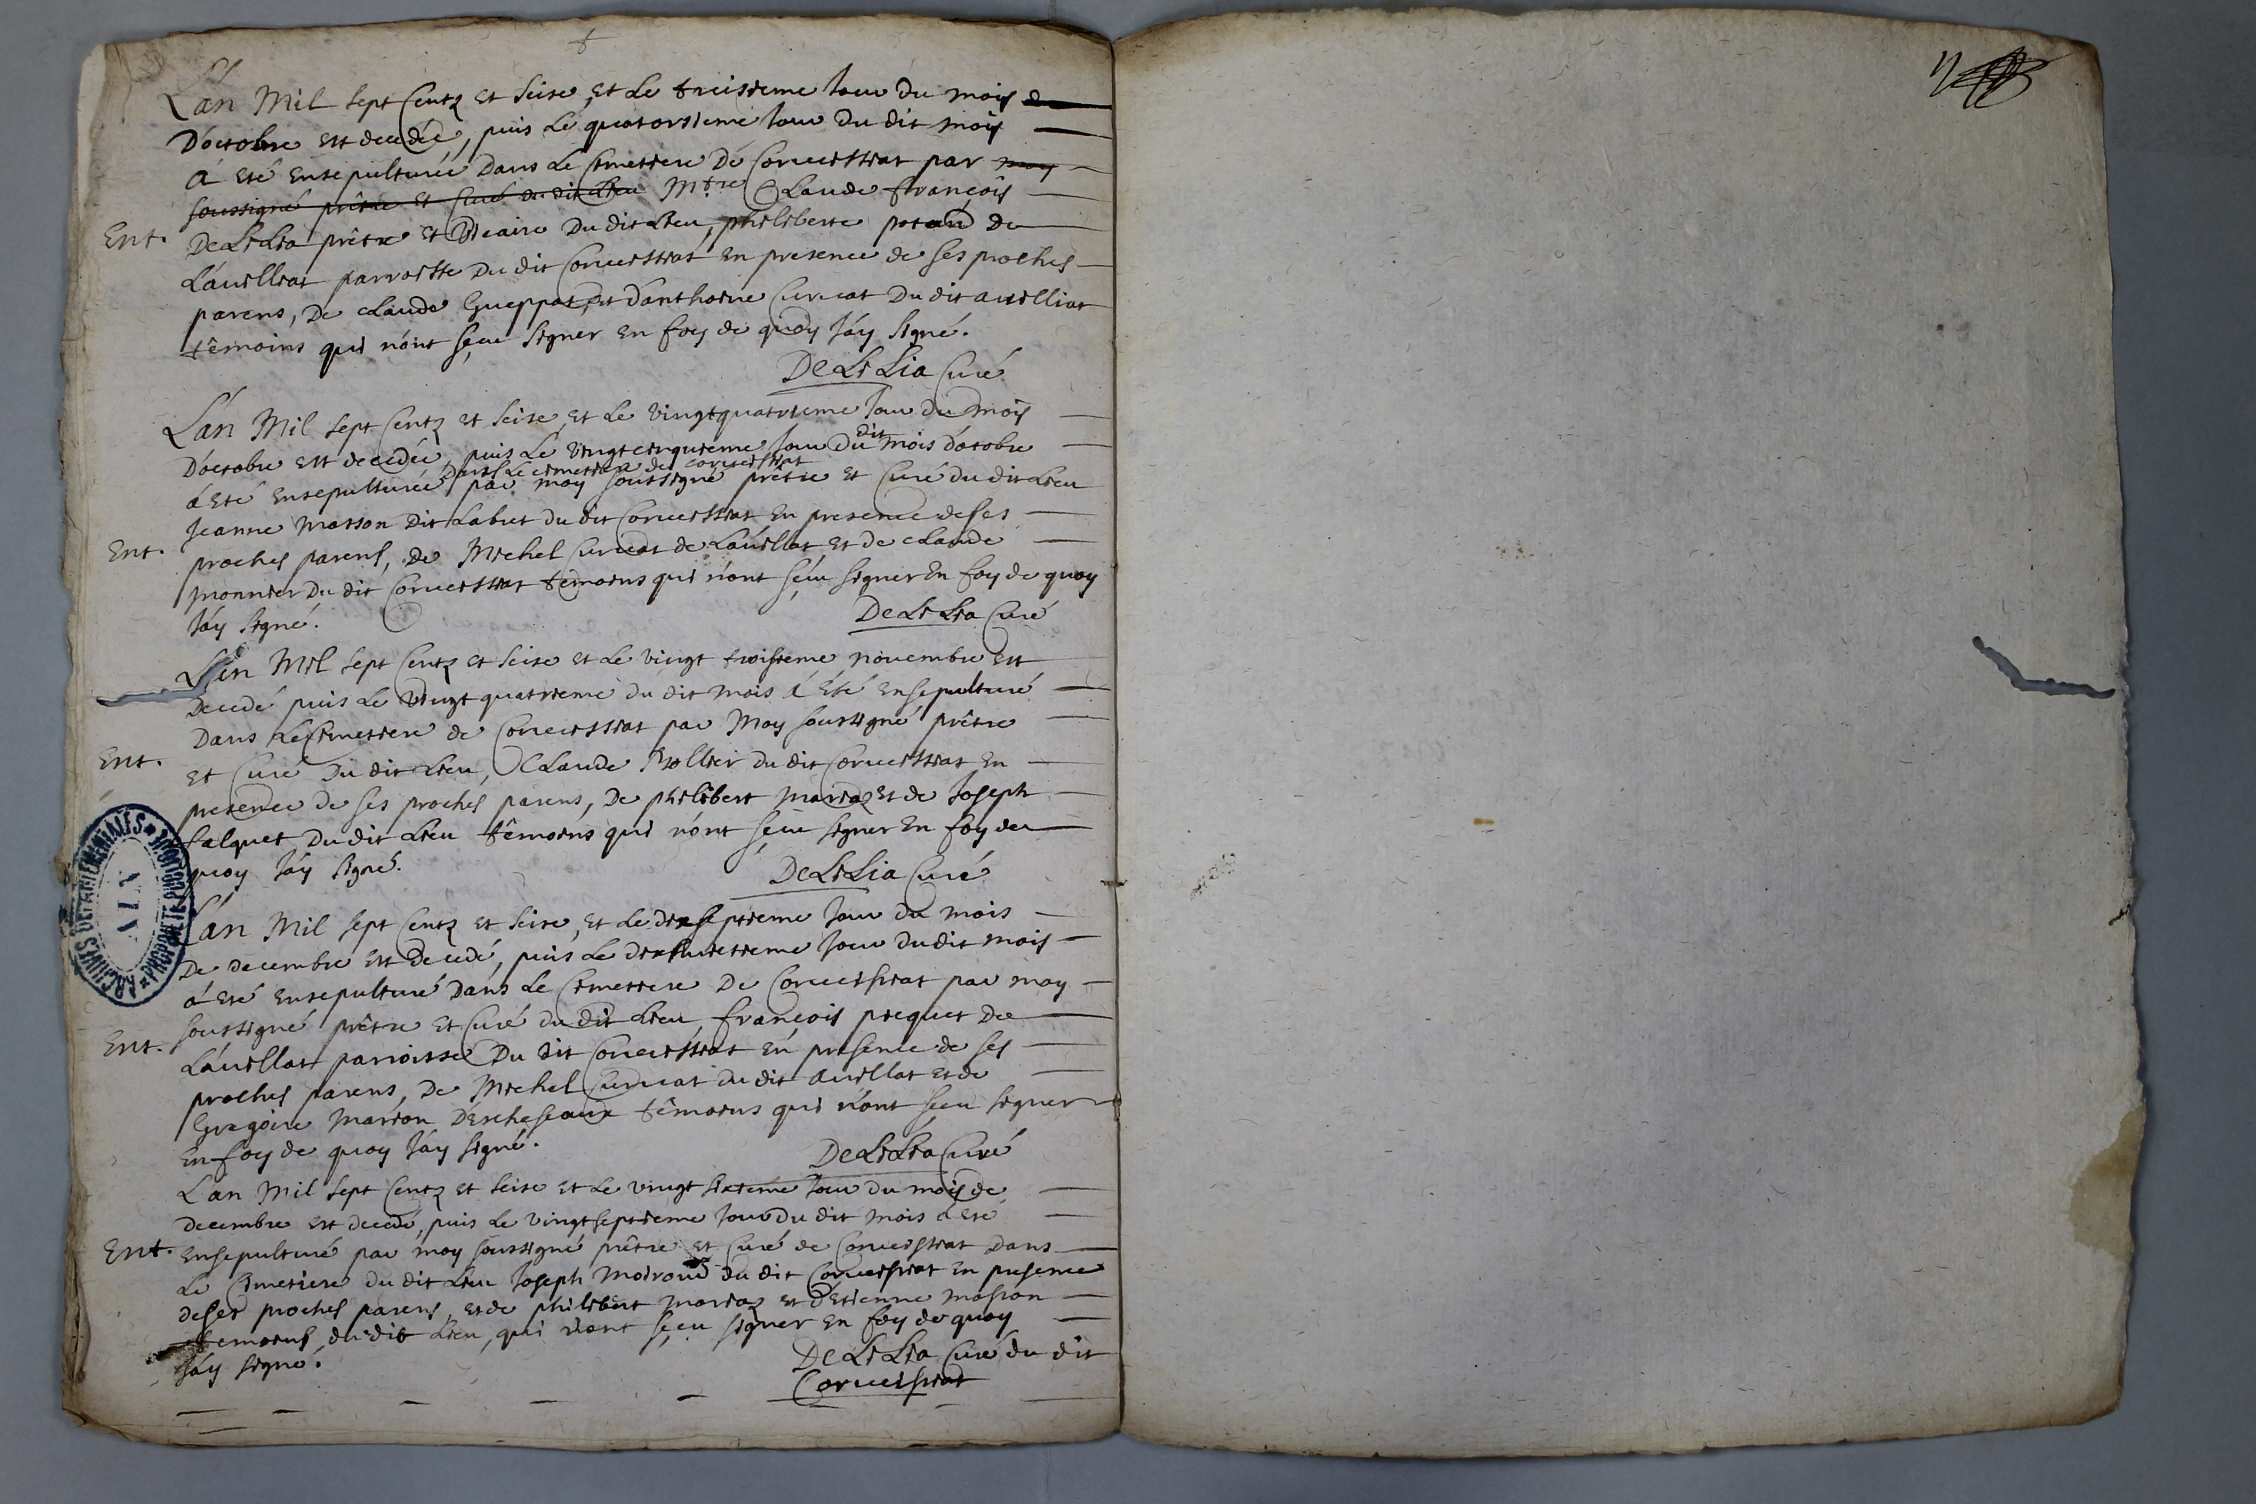 L'an Mil sept Centz et seise, et Le treisieme Jour du mois
D'octobre est decedée, puis Le quatorsieme Jour du dit mois
á eté ensepulturée Dans Le Cimetiere De Corveissiat par moy
soussigné prêtre et Curé du dit Lieu Mtre Claude françois
Ent. DeLiLia prêtre et vicaire Du dit Lieu, philiberte de
Lavilliat parroisse Du dit Corveissiat En presence de ses proches
parens, De claude Gueppat, et d'anthoine Curvat Du dit avilliat
têmoins qui n'ont sçeu signer en foy de quoy J'áy signé.
DeLiLia Curé
L'an Mil sept Centz et seise, et Le vingtquatrieme Jour du mois
D'octobre est decedée, puis Le vingtcinquieme Jour Du dit mois d'octobre
Dans Le cimetiere de corveissiat
á eté ensepulturée par moy soussigné prêtre et Curé du dit Lieu
Jeanne masson Dit Labret du dit Corveissiat En presence de ses
Ent. proches parens, De Michel Curvat de Lavillat et de claude
monnier Du dit Corveissiat temoins qui n'ont sçeu signer En foy de quoy
J'áy signé.
DeLiLia Curé
L'an Mil sept Centz et seise et Le vingt troisieme novembre est
Decedé puis Le vingt quatrieme du dit mois á été ensepulturé
Dans Le Cimetiere de Corveissiat par Moy soussigné prêtre
Ent. et Curé Du dit Lieu, Claude Rollier du dit Corveissiat En
presence de ses proches parens, De philibert mariaz et de Joseph
falquet Du dit Lieu têmoins qui n'ont sçeu signer En foy de
quoy J'áy signé.
DeLiLia Curé
ARCHIVES DEPARTEMENTALES * PROPRIETE PUBLIQUE *
AIN
L'an Mil sept Centz et seise, et Le dixseptieme Jour du mois
De decembre est Decedé, puis Le dixhuitieme Jour du dit mois
á eté ensepulturé Dans Le Cimetiere De Corveissiat par moy
soussigné prêtre et Curé du dit Lieu, françois piequet De
Ent. Lávillat parroisse Du dit Corveissiat En presence de ses
proches parens, De Michel Curvat du dit avillat et de
Gregoire marion D'escheseaux têmoins qui n'ont sçeu signer
En foy de quoy J'áy signé.
DeLiLia Curé
L'an Mil sept Centz et seise et Le vingt sixieme Jour du mois de
decembre est decedé, puis Le vingtseptieme Jour Du dit mois á eté
Ent. Ensepulturé par moy soussigné prêtre et Curé de Corveissiat Dans
Le Cimetiere du dit Lieu Joseph moiroud du dit Corveissiat en presence
de ses proches parens, et de philibert mariaz et d'Etienne masson
temoins du dit Lieu, qui n'ont sçeu signer En foy de quoy
J'áy signé.
DeLiLia Curé du dit
Corveissiat